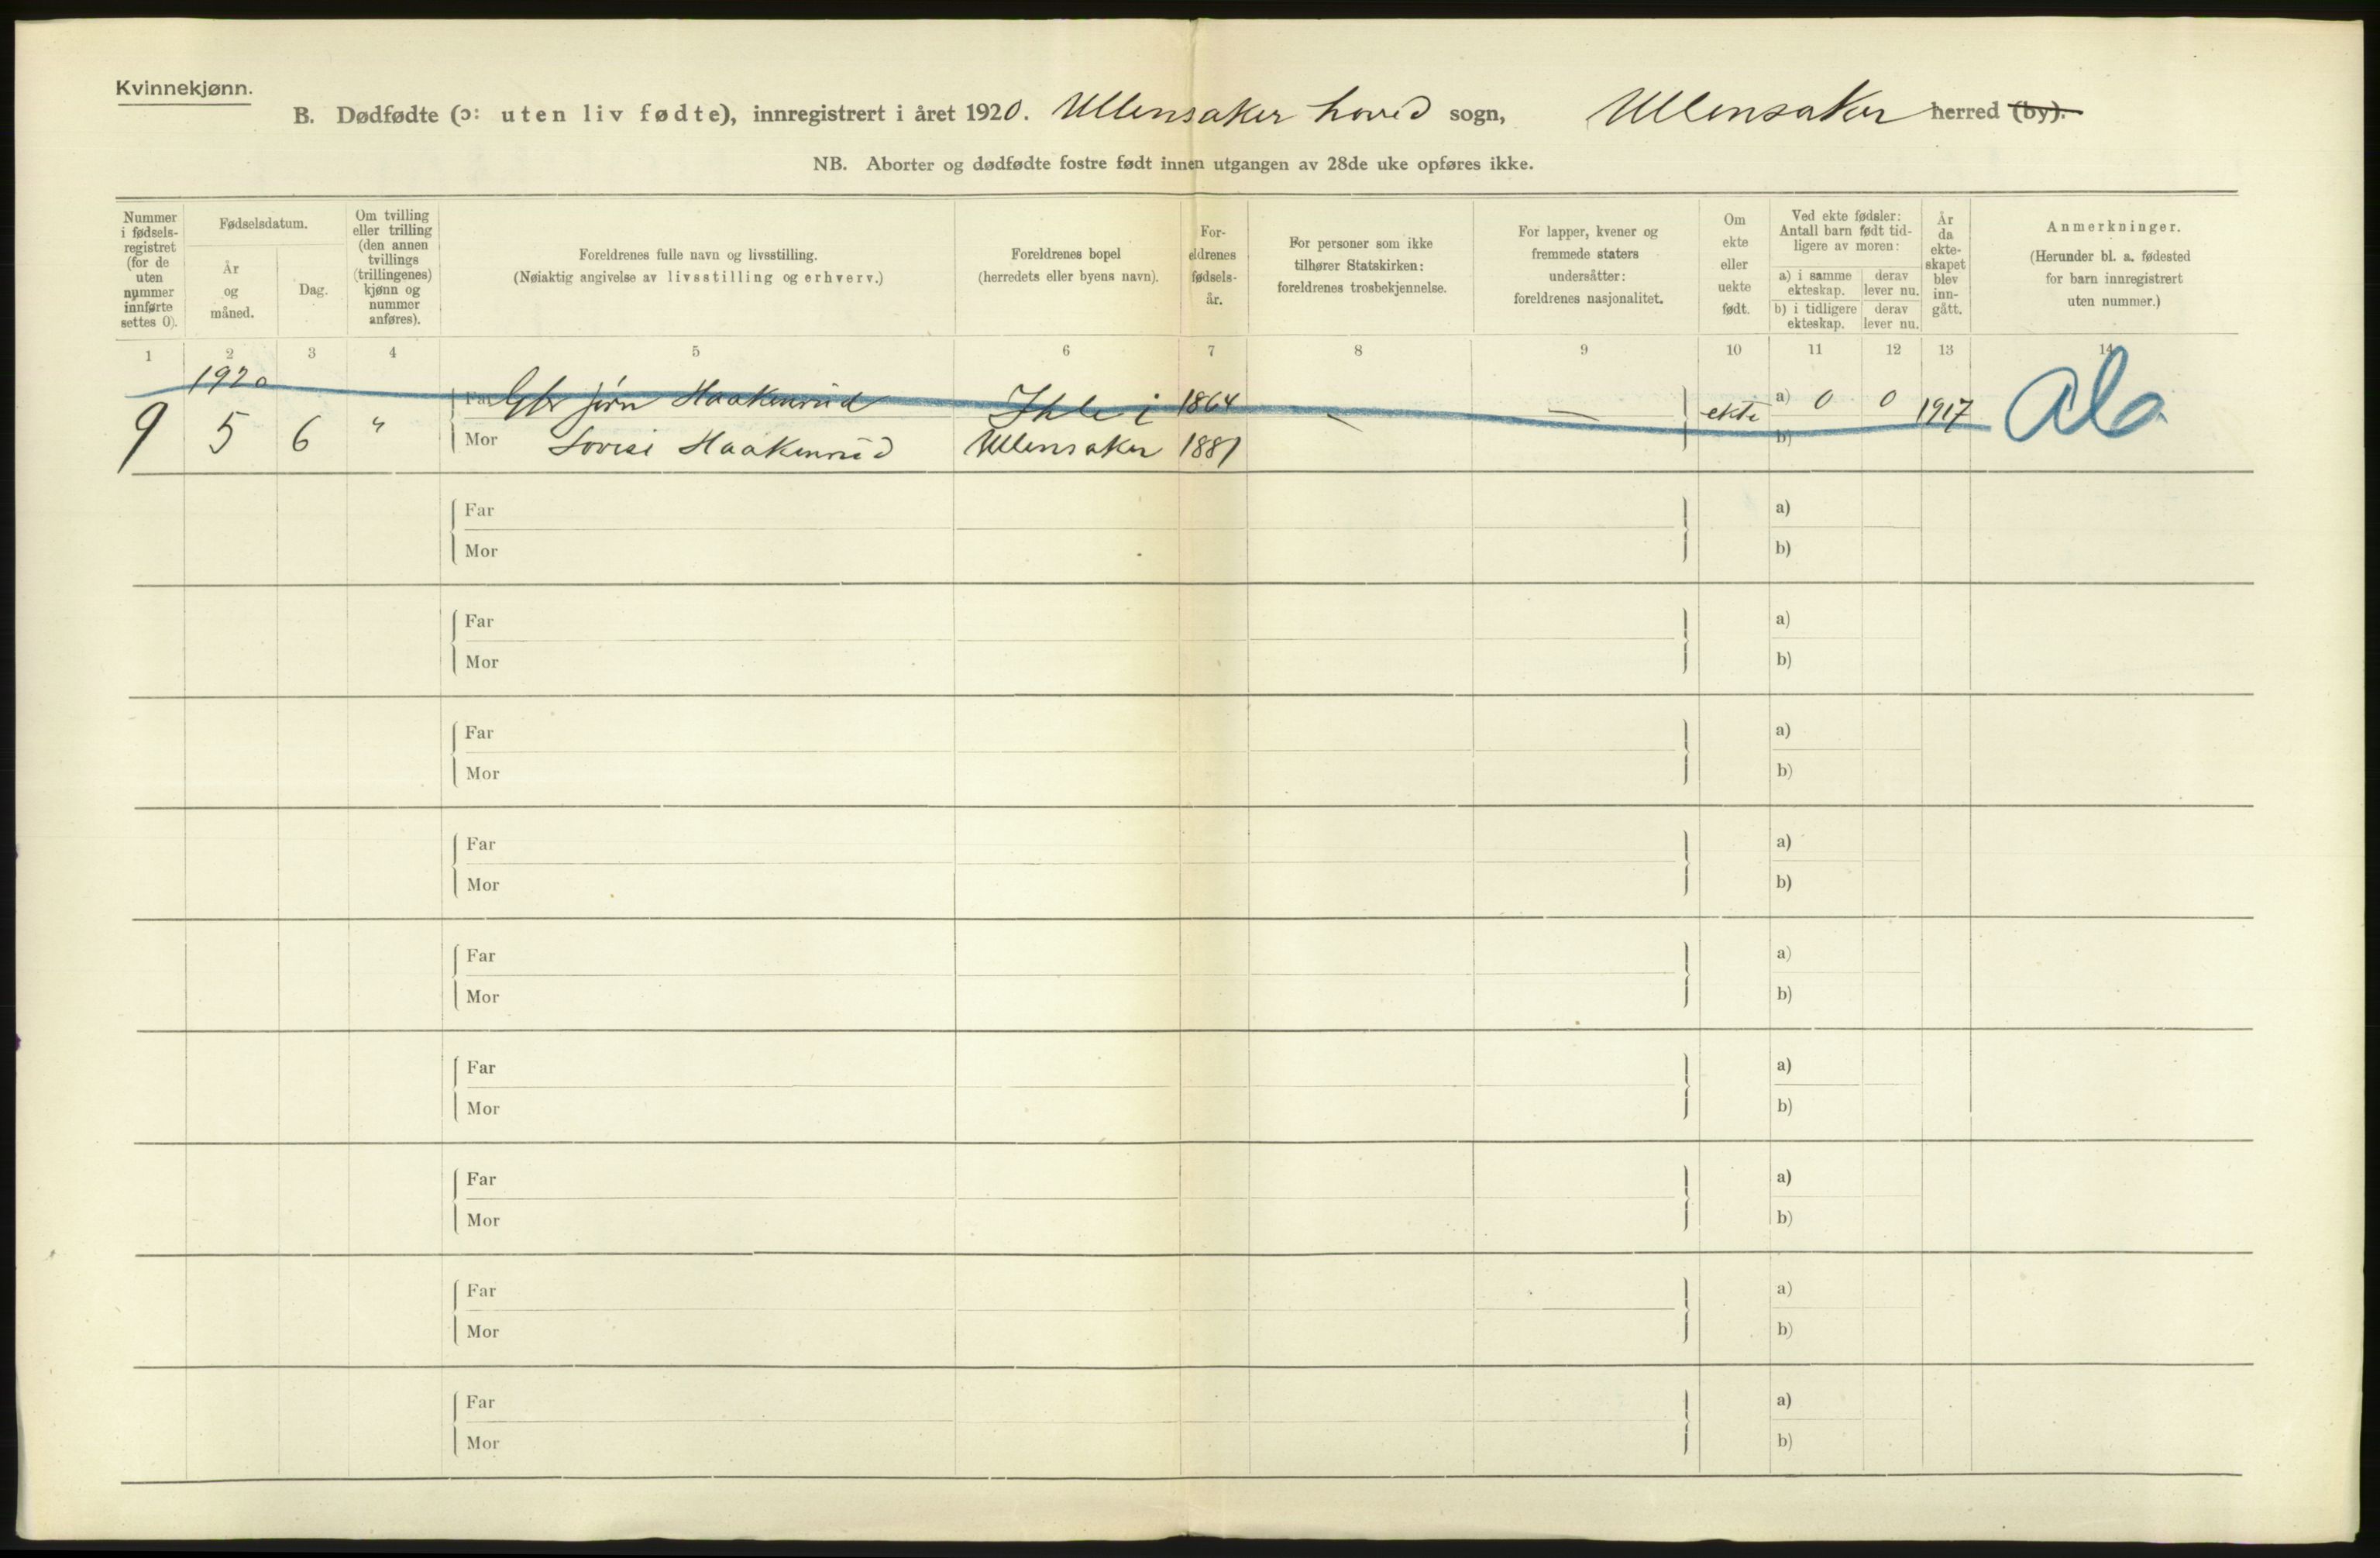 Kvinnekjønn.
B. Dødfødte (ɔ: uten liv fødte), innregistrert i året 1920. Ullensaker hoved sogn, Ullensaker herred (by).
NB. Aborter og dødfødte fostre født innen utgangen av 28de uke opføres ikke.
Nummer i fødselsregistret (for de uten nummer innførte settes 0).
Fødselsdatum.
År og måned.
Dag.
Om tvilling eller trilling (den annen tvillings (trillingenes) kjønn og nummer anføres).
Foreldrenes fulle navn og livsstilling.
(Nøiaktig angivelse av livsstilling og erhverv.)
Foreldrenes bopel
(herredets eller byens navn).
Foreldrenes fødselsår.
For personer som ikke tilhører Statskirken: foreldrenes trosbekjennelse.
For lapper, kvener og fremmede staters undersåtter: foreldrenes nasjonalitet.
Om ekte eller uekte født.
Ved ekte fødsler: Antall barn født tidligere av moren:
a) i samme ekteskap. derav lever nu.
b) i tidligere ekteskap. derav lever nu.
År da ekteskapet blev inngått.
Anmerkninger.
(Herunder bl. a. fødested for barn innregistrert uten nummer.)
1 2 3 4 5 6 7 8 9 10 11 12 13 14
1920
Far Gbr Jørn Haakenrud Ihle i 1864 — — ekte a) 0 0 1917
9 5 6 " Mor Lovise Haakenrud Ullensaker 1881 b)
Far a)
Mor b)
Far a)
Mor b)
Far a)
Mor b)
Far a)
Mor b)
Far a)
Mor b)
Far a)
Mor b)
Far a)
Mor b)
Far a)
Mor b)
Far a)
Mor b)